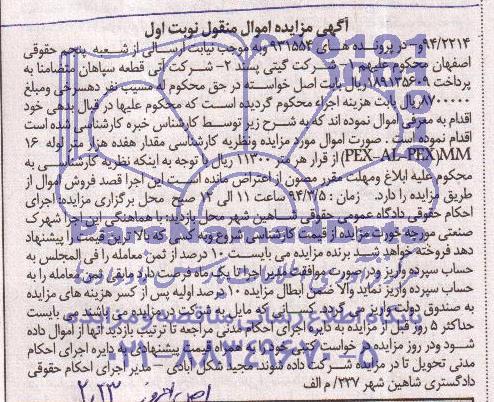 آگهی مزایده اموال منقول نوبت اول
۹۴/۲۲۱۴و- در پرونده های ۹۳۱۵۵۴ وبه موجب نیابت ارسالی از شعبه پنجم حقوقی
اصفهان محکوم علیهم ۱- شرکت گیتی پسند ۲- شرکت آتی قطعه سپاهان متضامنا به
پرداخت ۱۸۹۱۳۵۶۰۹ ریال بابت اصل خواسته در حق محکوم له مسیب نفر دهسرخی ومبلغ
۸۷۰۰۰۰۰ ریال بابت هزینه اجراء محکوم گردیده است که محکوم علیها در قبال بدهی خود
اقدام به معرفی اموال نموده اند که به شرح زیر توسط کارشناس خبره کارشناسی شده است
اقدام نموده است . صورت اموال مورد مزایده ونظریه کارشناسی مقدار هفده هزار متر لوله ۱۶
MM(PEX-AL-PEX) از قرار هر متر ۱۱۳۰۰ ریال با توجه به اینکه نظریه کارشناسی به
محکوم علیه ابلاغ ومهلت مقرر مصون از اعتراض مانده است این اجرا قصد فروش اموال از
طریق مزایده را دارد. زمان : ۹۴/۳/۵ ساعت ۱۱ الی ۱۲ صبح محل برگزاری مزایده: اجرای
احکام حقوقی دادگاه عمومی حقوقی شاهین شهر محل بازدید: با هماهنگی این اجرا شهرک
صنعتی مورچه خورت مزایده از قیمت کارشناسی شروع وبه کسی که بالاترین قیمت را پیشنهاد
دهد فروخته خواهد شد. برنده مزایده می بایست ۱۰ درصد از ثمن معامله را فی المجلس به
حساب سپرده واریز ودر صورت موافقت مدیر اجرا تا یک ماه فرصت دارد مابقی ثمن معامله را به
حساب سپرده واریز نماید والا ضمن ابطال مزایده ۱۰ درصد اولیه پس از کسر هزینه های مزایده
به صندوق دولت واریز می گردد. کسانی که مایل به شرکت در مزایده می باشند می بایست
حداکثر ۵ روز قبل از مزایده به دایره اجرای احکام مدنی مراجعه تا ترتیب بازدید آنها از اموال داده
شود ودر روز مزایده درخواست کتبی خود را به همراه قیمت پیشنهادی به دایره اجرای احکام
مدنی تحویل تا در مزایده شرکت داده شوند. مجید شکل آبادی – مدیر اجرای احکام حقوقی
دادگستری شاهین شهر ۲۳۷/ م الف
۲,۲۳
۰۲۱-۸۸۳۴۹۶۷۰-۵